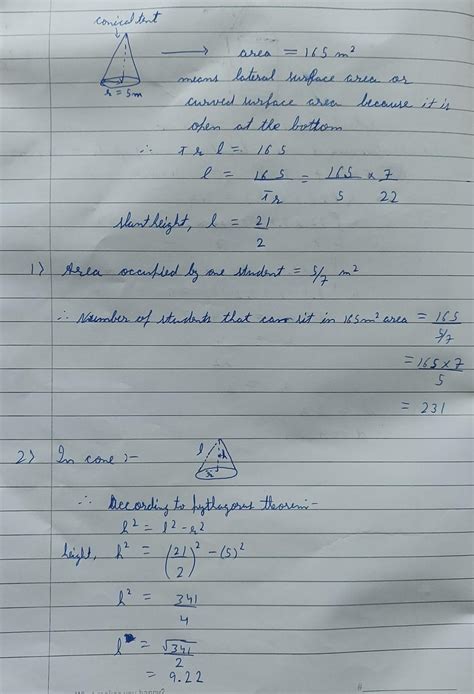 conical tent
r = 5m
→ area = 165 m²
means lateral surface area or
curved surface area because it is
open at the bottom
∴ π r l = 165
l = 165/πr = 165/5 × 7/22
slant height, l = 21/2
1) Area occupied by one student = 5/7 m²
∴ Number of students that can sit in 165m² area = 165/(5/7)
= 165 × 7/5
= 231
2) In cone :-
l
h
r
∴ According to pythagoras theorem-
h² = l² - r²
height, h² = (21/2)² - (5)²
h² = 341/4
h = √341/2
= 9.22